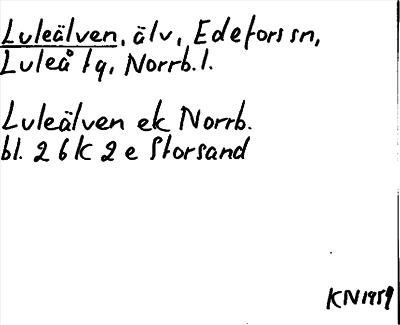 Luleälven, älv, Edefors sn,
Luleå tg, Norrb. l.
Luleälven ek Norrb.
bl. 26K 2e Storsand
KN 1959